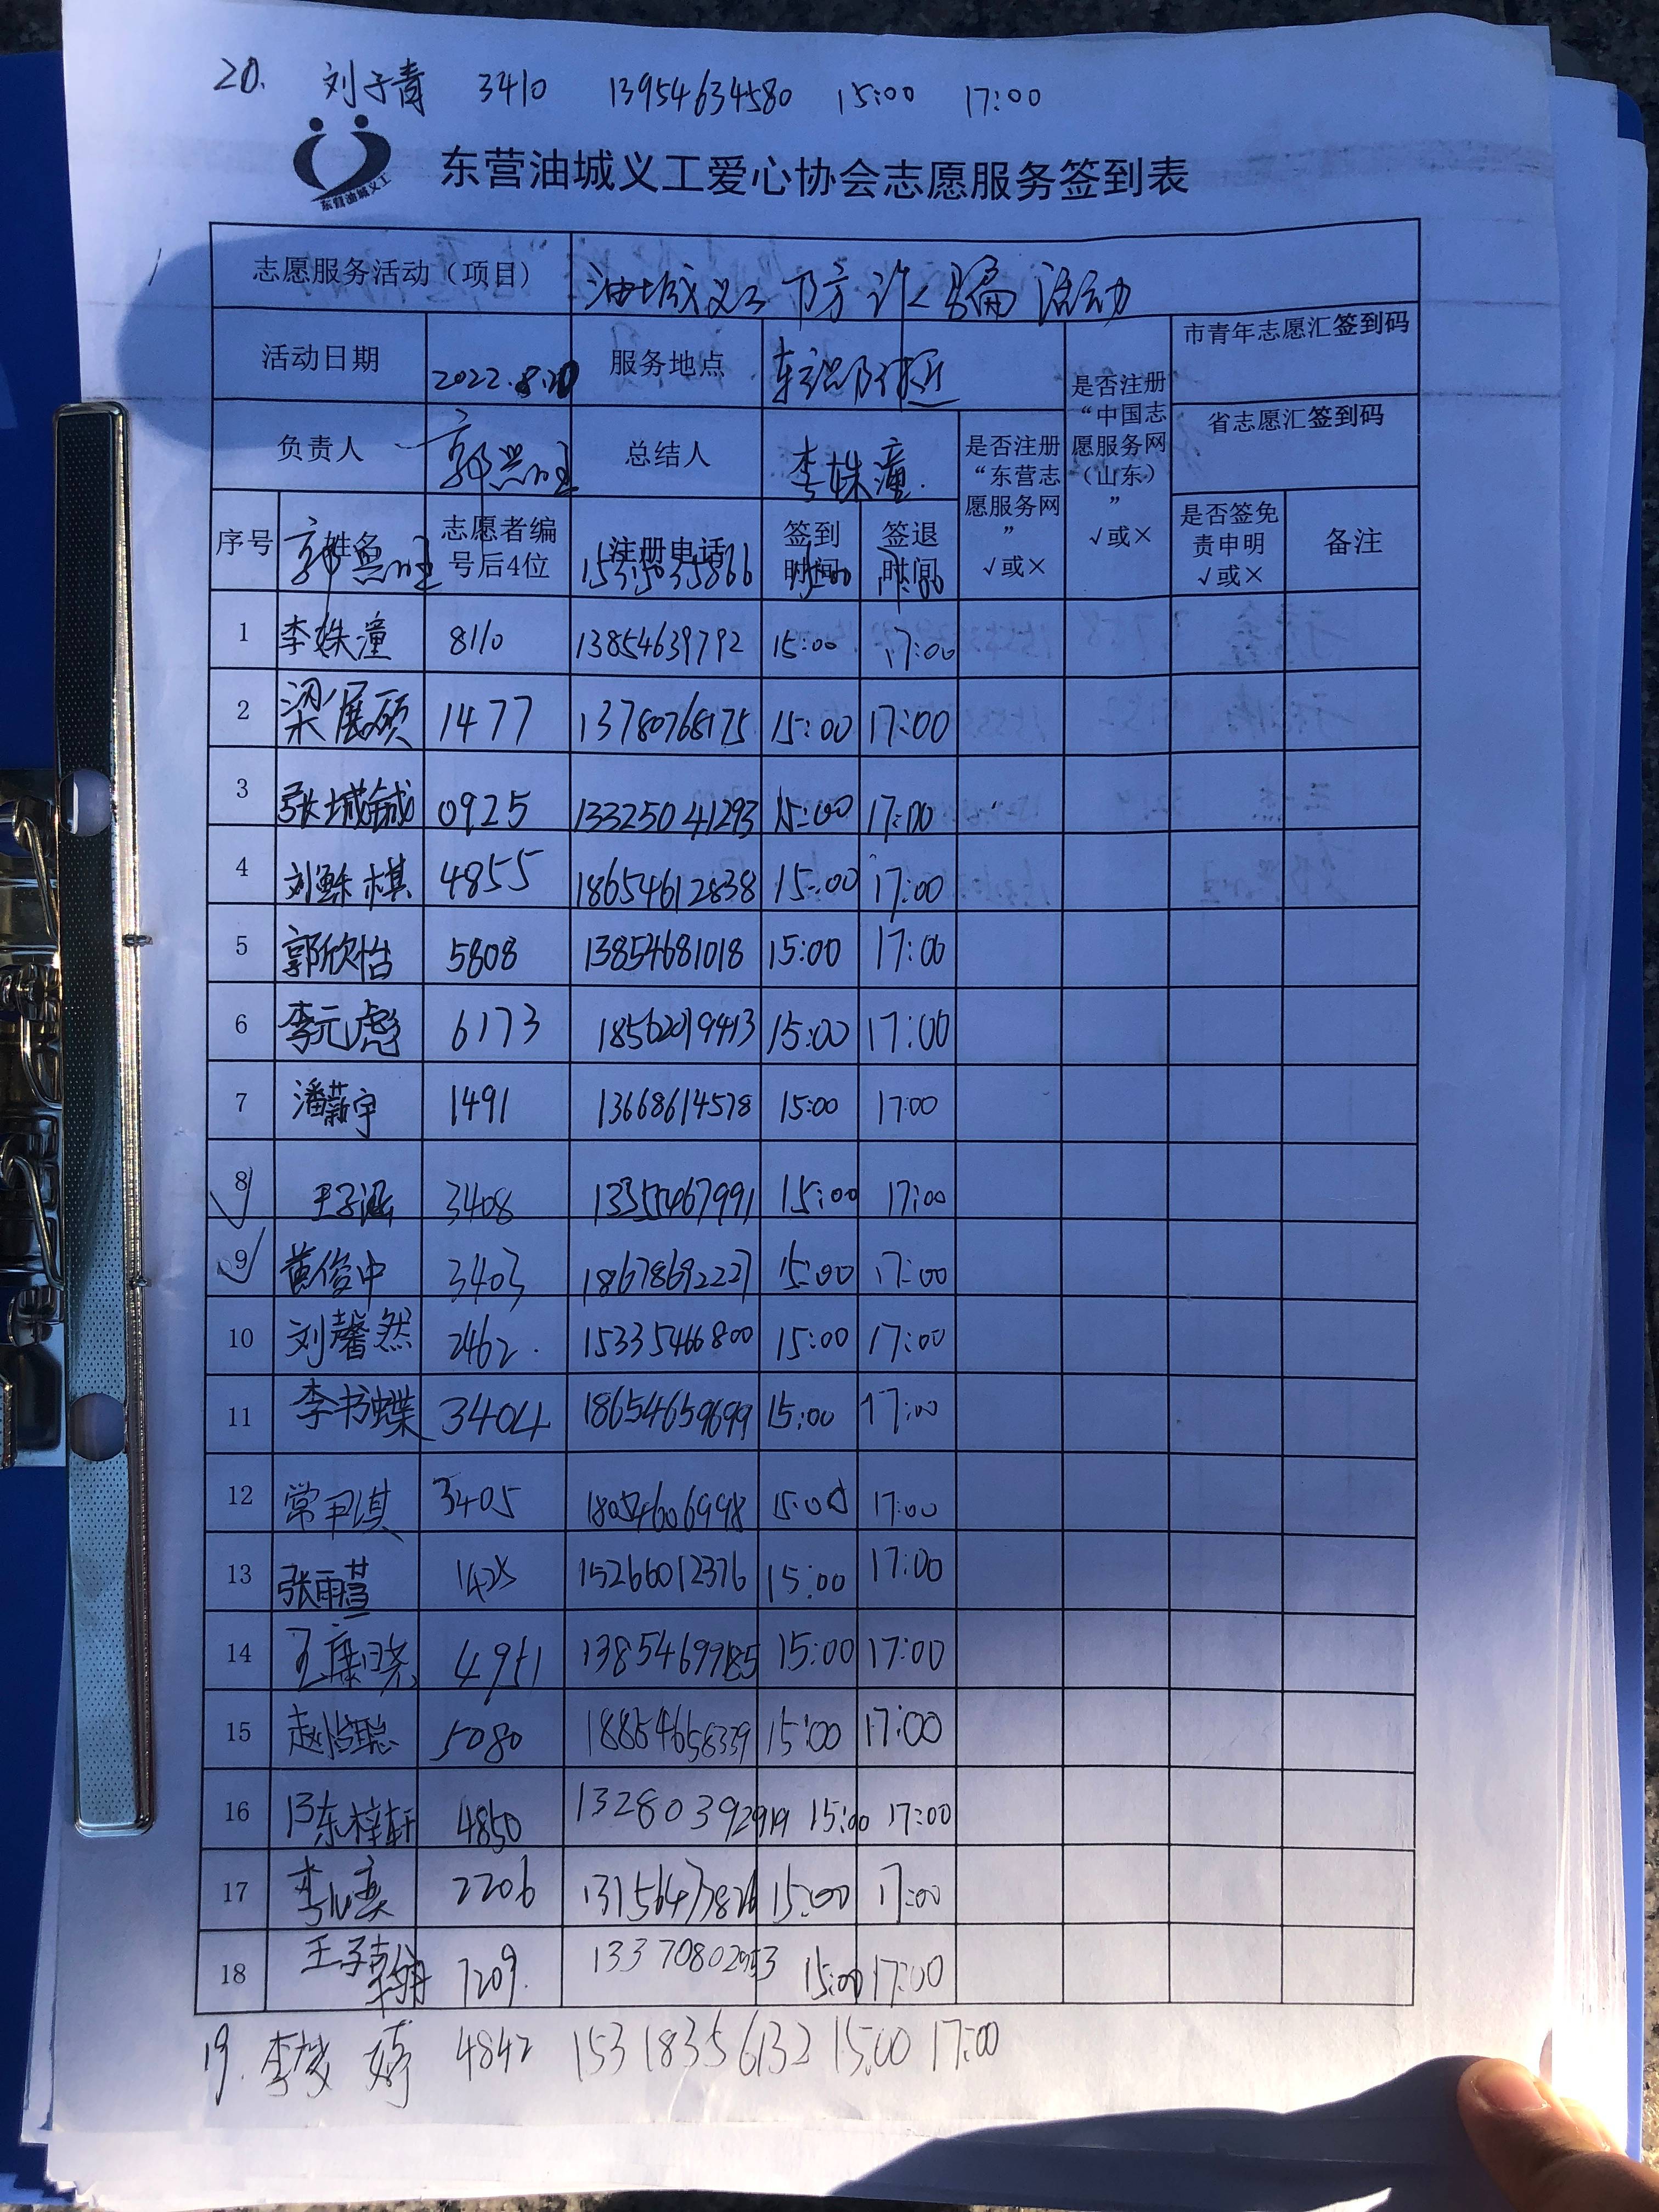 20. 刘子青 3410 13954634580 15:00 17:00
东营油城义工
东营油城义工爱心协会志愿服务签到表
志愿服务活动（项目） 油城义工防诈骗活动
活动日期 2022.8.20 服务地点 市青年志愿汇签到码
负责人 总结人 李姝潼 省志愿汇签到码
是否注册“东营志愿服务网” √或×
是否注册“中国志愿服务网（山东）” √或×
序号 姓名 志愿者编号后4位 注册电话 签到时间 签退时间 是否签免责申明 √或× 备注
15315035866 15:00 17:00
1 李姝潼 8110 13854639792 15:00 17:00
2 梁展硕 1477 13780768175 15:00 17:00
3 张城铖 0925 13325041293 15:00 17:00
4 刘稣棋 4855 18654612838 15:00 17:00
5 郭欣怡 5808 13854681018 15:00 17:00
6 李元彪 6173 18562019413 15:00 17:00
7 潘薪宇 1491 13668614578 15:00 17:00
8 王子涵 3408 13355467991 15:00 17:00
9 黄俊中 3403 18678692227 15:00 17:00
10 刘馨然 2462 15335466800 15:00 17:00
11 李书蝶 3404 18654659699 15:00 17:00
12 常尹淇 3405 18054606998 15:00 17:00
13 张雨 15266012376 15:00 17:00
14 王康晓 4951 13854699185 15:00 17:00
15 赵怡聪 5080 18854658339 15:00 17:00
16 陈梓轩 4850 13280392919 15:00 17:00
17 李 2206 15:00 17:00
18 王子翰 7209 15:00 17:00
19. 李 婷 4842 15318356132 15:00 17:00